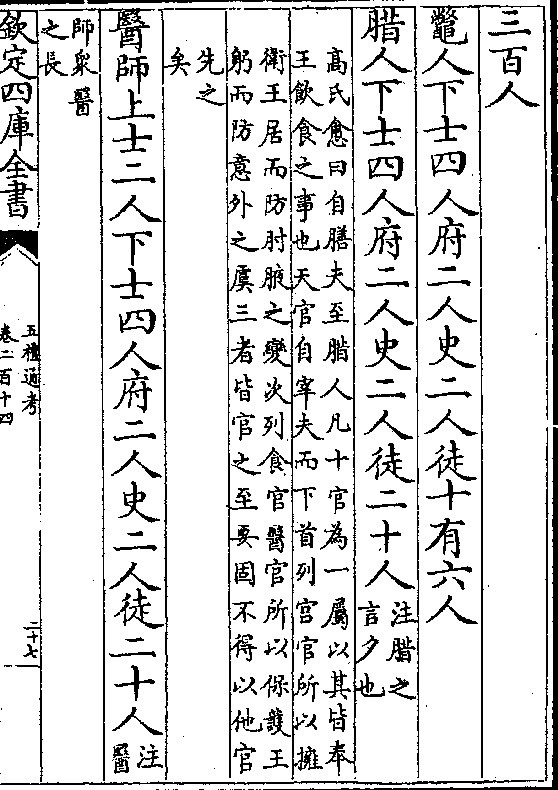 三百人
鼈人下士四人府二人史二人徒十有六人
腊人下士四人府二人史二人徒二十人注腊之
言夕也
高氏愈曰自膳夫至腊人凡十官為一屬以其皆奉
王飲食之事也天官自宰夫而下首列宫官所以擁
衛王居而防肘腋之變次列食官醫官所以保護王
躬而防意外之虞三者皆官之至要固不得以他官
先之
矣
醫師上士二人下士四人府二人史二人徒二十人注
醫
師衆醫
之長
欽定四庫全書
五禮通考
卷二百十四
二十七